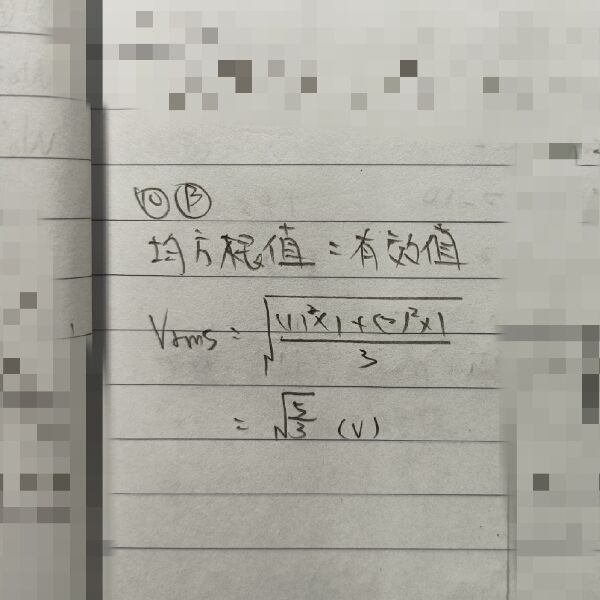 ⑩ Ⓑ
均方根值 = 有效值
Vrms = √(((1)²×1 + (-2)²×1)/3)
= √(5/3) (V)